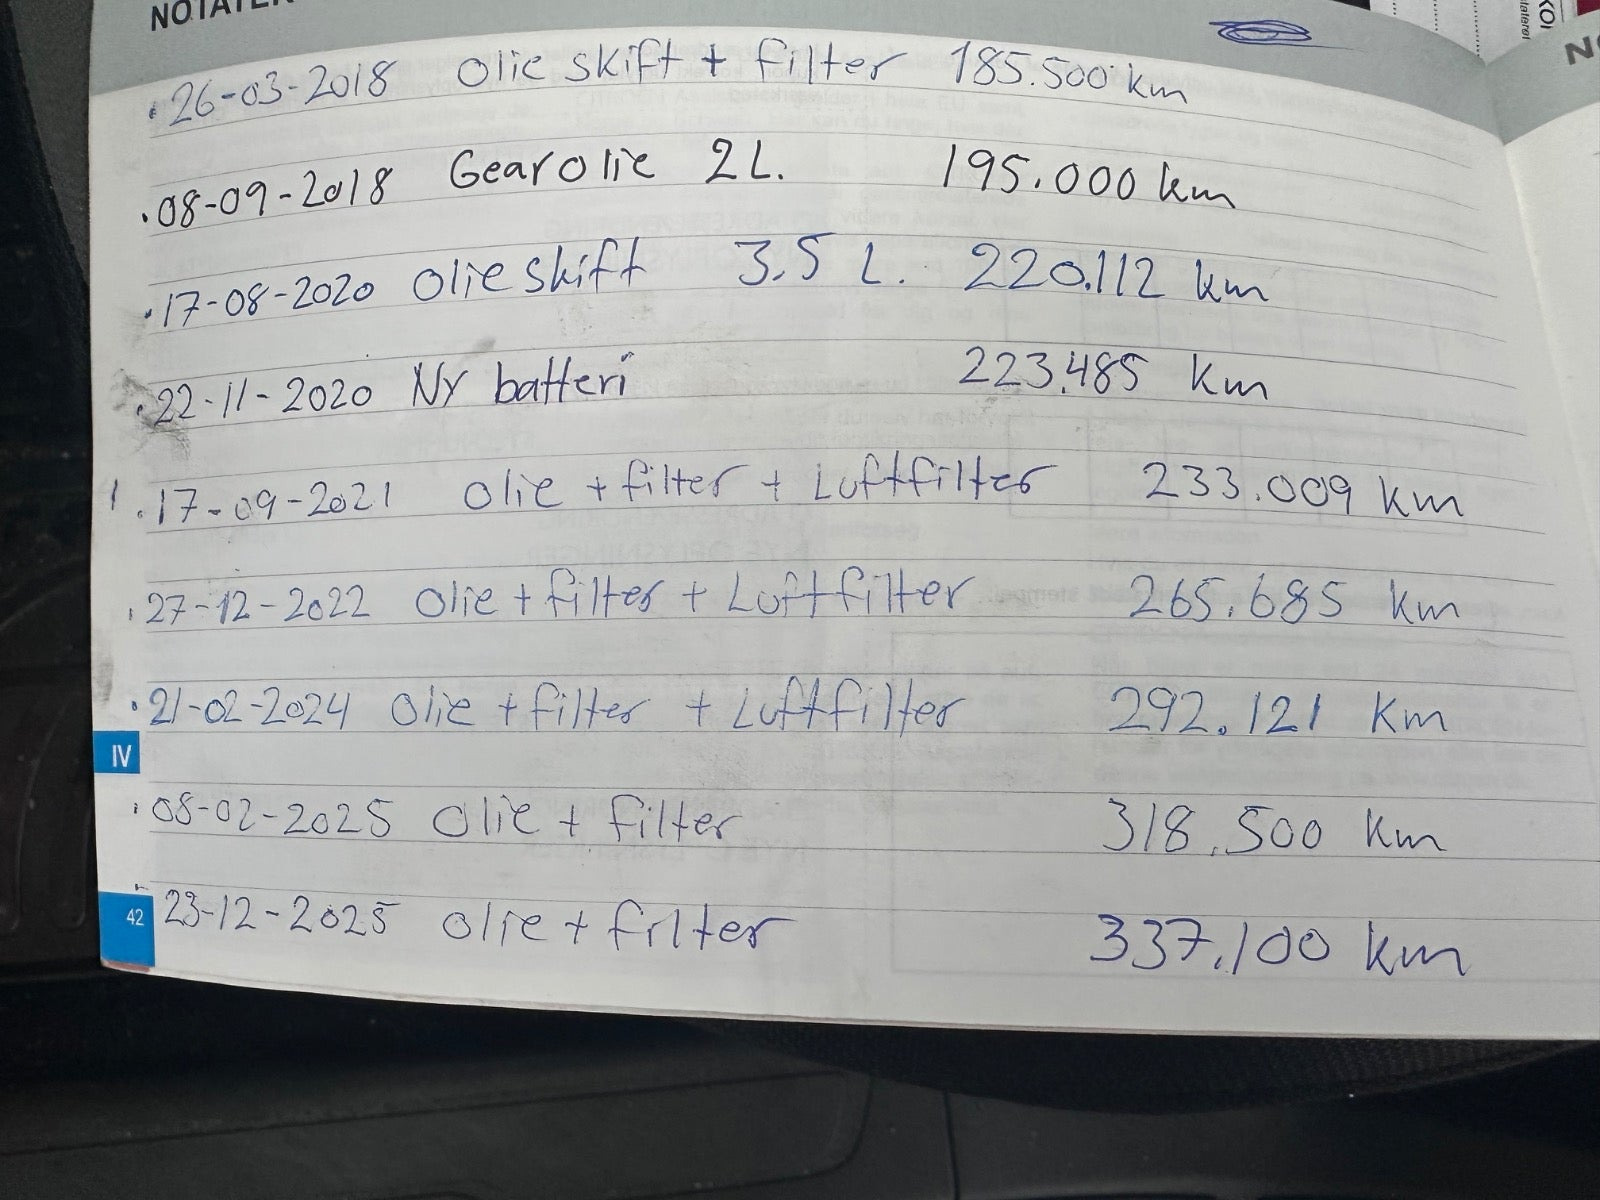 NOTATER
• 26-03-2018 Olie skift + filter 185.500 km
• 08-09-2018 Gearolie 2L. 195.000 km
• 17-08-2020 Olieskift 3,5 L. 220.112 km
• 22-11-2020 Ny batteri 223.485 km
• 17-09-2021 Olie + filter + Luftfilter 233.009 km
• 27-12-2022 Olie + filter + Luftfilter 265.685 km
• 21-02-2024 Olie + filter + Luftfilter 292.121 Km
IV
• 08-02-2025 Olie + filter 318.500 Km
42 23-12-2025 Olie + filter 337.100 km